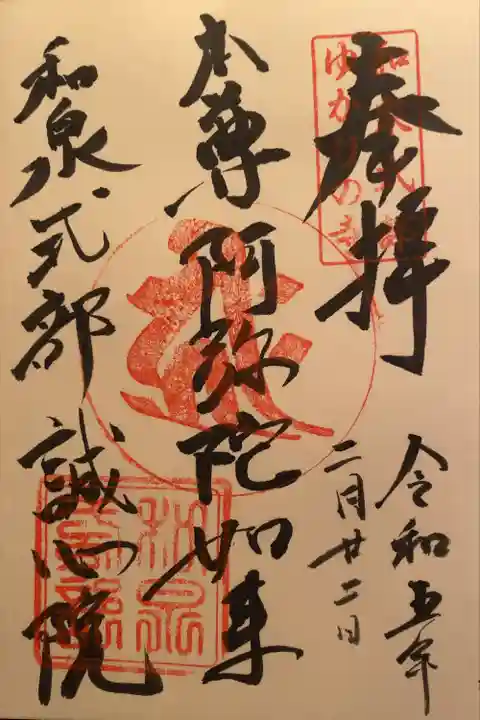 奉拝
令和五年
二月廿二日
本尊阿弥陀如来
和泉式部 誠心院
和泉式部
ゆかりの寺